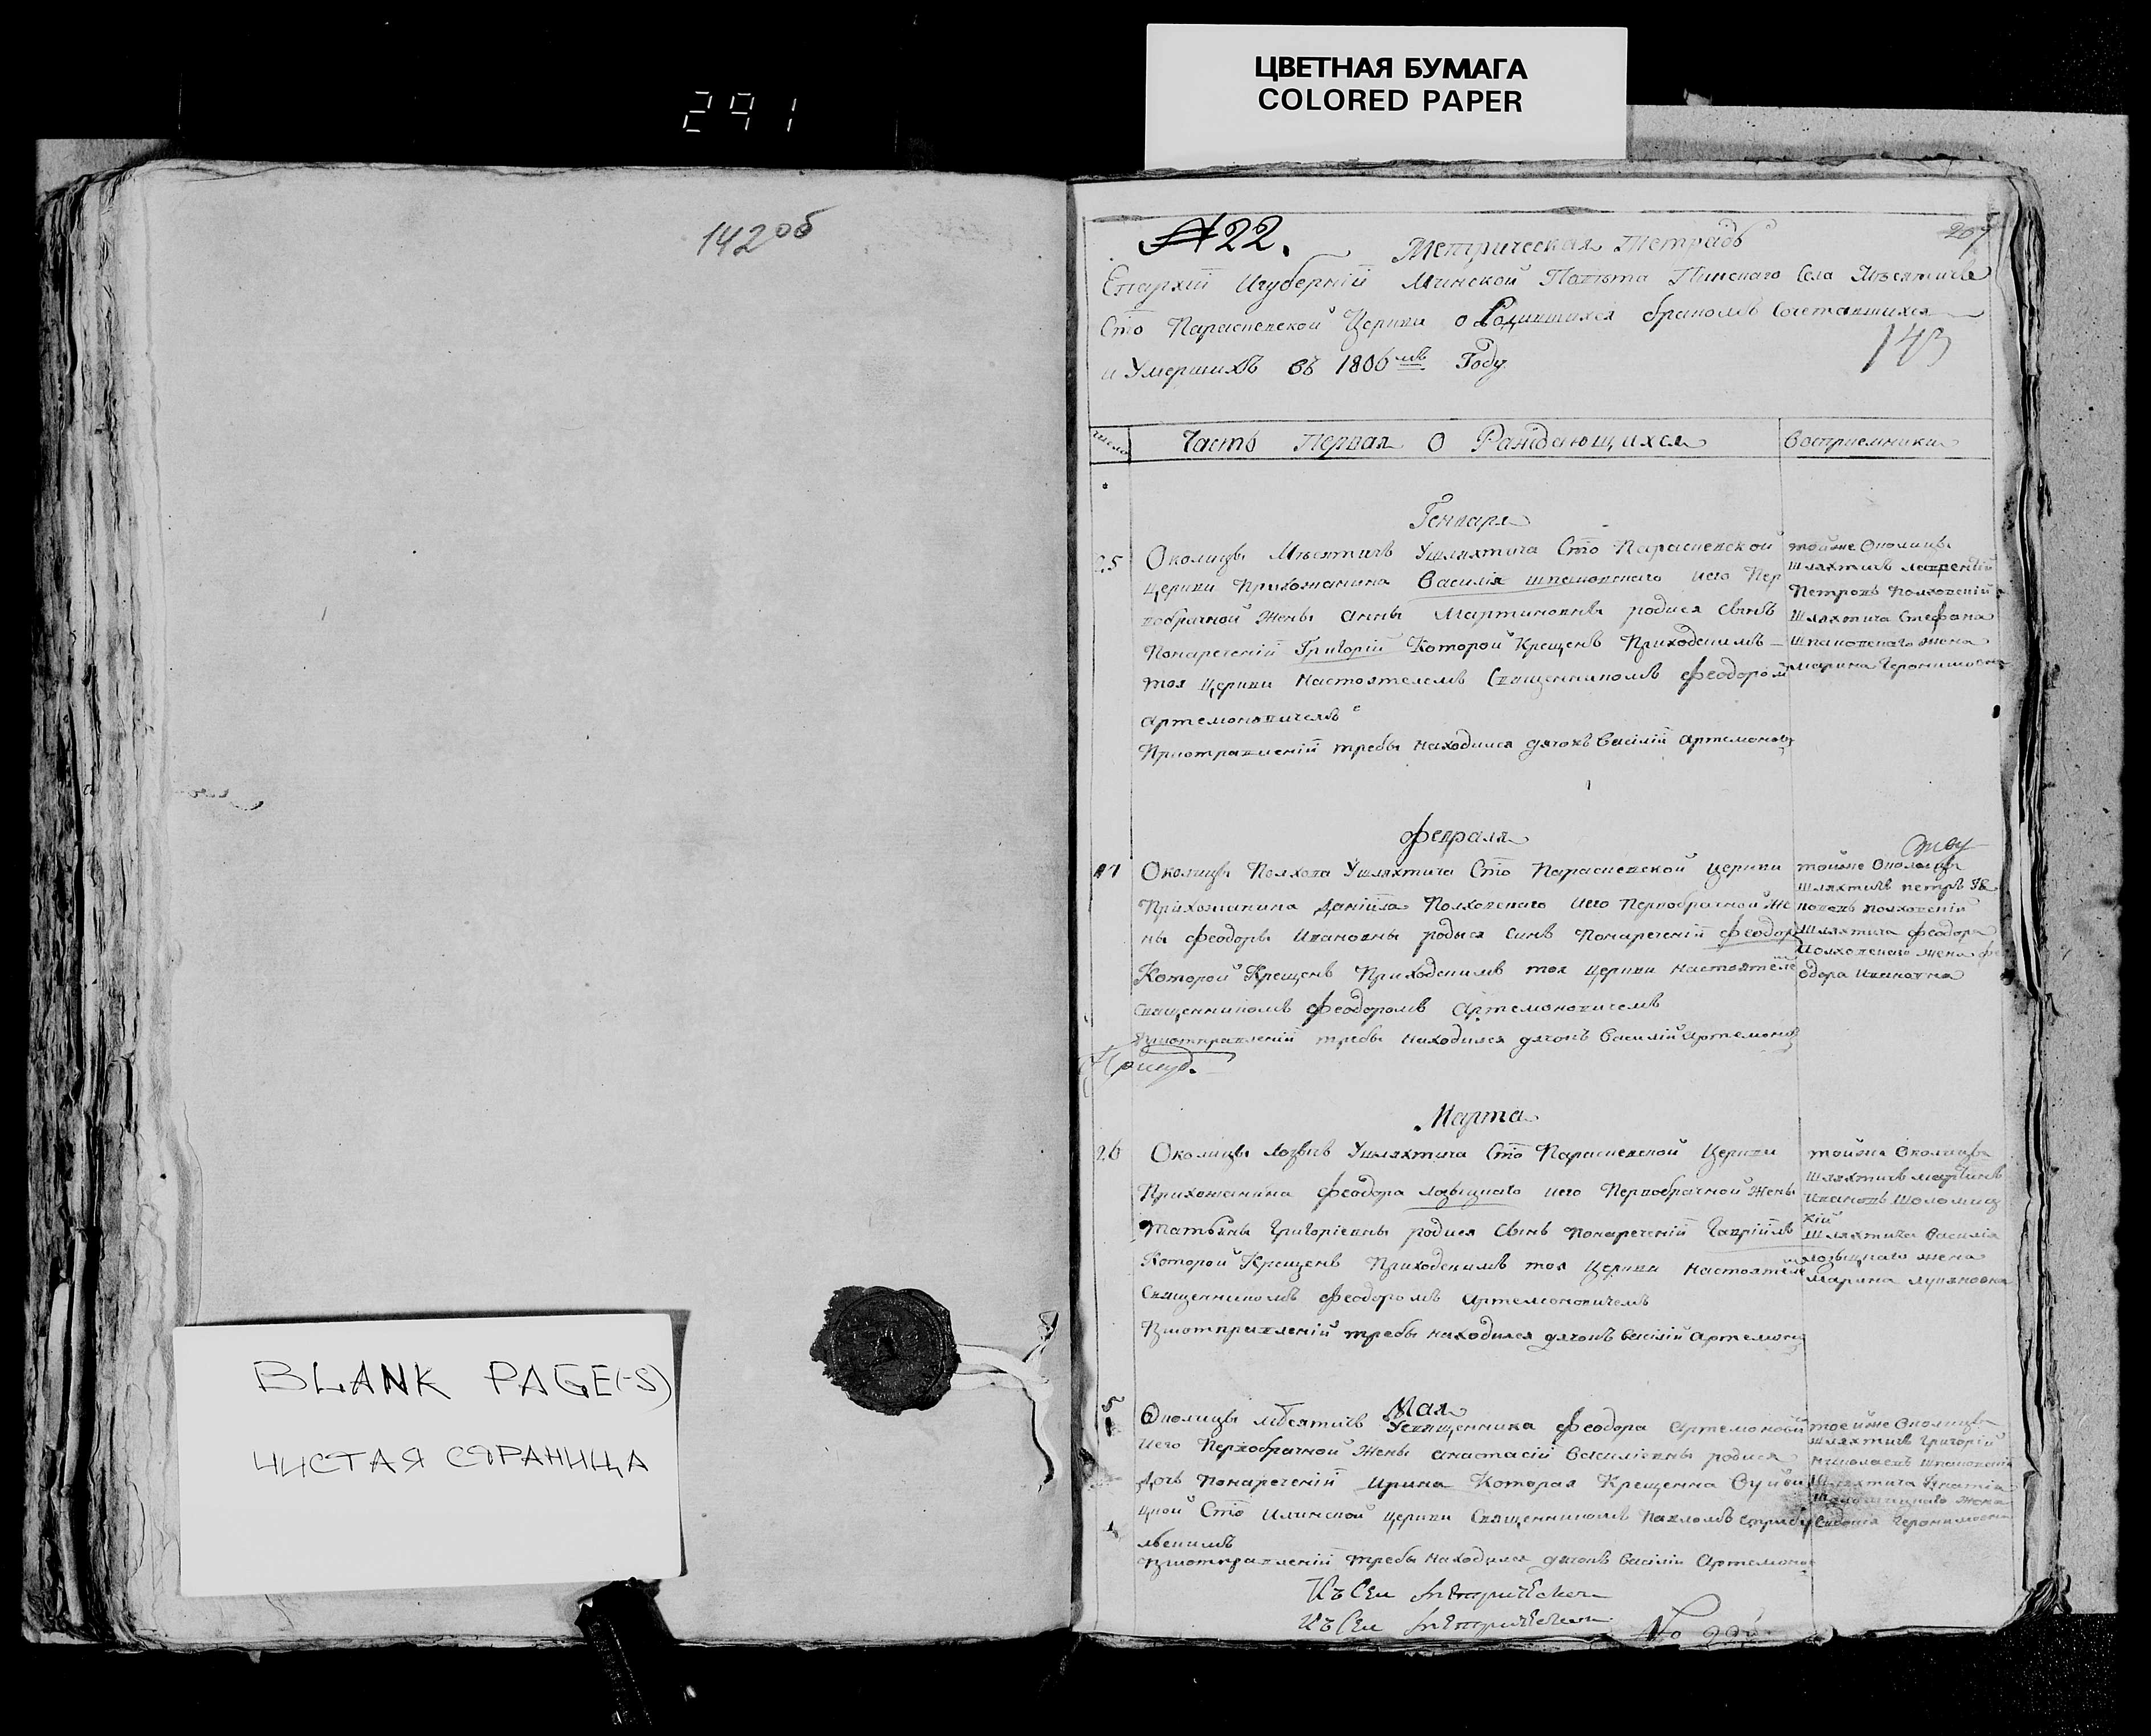 ЦВЕТНАЯ БУМАГА
COLORED PAPER
291
142об
BLANK PAGE(-S)
ЧИСТАЯ СТРАНИЦА
№22.
Метрическая тетрадь
Епархіи Игуберніи Минской Повѣта Пинскаго Села Мѣсятичь
Сто Параскевской Церкви о Родившихся бракомъ Сочетавшихся
143
и Умершихъ въ 1806мъ Году
Число
Часть Первая О Раждающихся
Восприемники
Генваря
25
Околицы Мѣсятичь Ушляхтича Сто Параскевской
Церкви Прихожанина Василія шпаковскаго иего Пер
вобрачной Жены Анны Мартиновны родися Сынъ
Понареченій Григорій Которой Крещенъ Приходскимъ
тоя Церкви Настоятелемъ Священникомъ Феодоромъ
Артемоновичемъ
Приотправленій требы находился дячокъ Василій Артемонов
тойже Околицы
Шляхтичь Лаврентій
Петровъ Полховскій
Шляхтича Стефана
Шпаковскаго жена
Марина Иеронимовна
Февраля
Околицы Полхова Ушляхтича Сто Параскевской Церкви
Прихожанина Даніила Полховскаго иего Первобрачной Же
ны Феодоры Ивановны родися Синъ Понареченій Феодоръ
Которой Крещенъ Приходскимъ тоя Церкви Настоятеле
Священникомъ Феодоромъ Артемоновичемъ
Приотправленій требы находился дячокъ Василій Артемонов
тойже Околицы
Шляхтичь Петръ Я
ковевъ Полховскій
Шляхтича Феодора
Полховскаго жена Фе
одора Ивановна
Марта
26
Околицы Лозичь Ушляхтича Сто Параскевской Церкви
Прихожанина Феодора Лозицкаго иего Первобрачной Жены
Татьяны Григоріевны родися Сынъ Понареченій Гавріилъ
Которой Крещенъ Приходскимъ тоя Церкви Настоятеле
Священникомъ Феодоромъ Артемоновичемъ
Приотправленій требы находился дячокъ Василій Артемонов
тойже Околицы
Шляхтичь Мартинъ
Ивановъ Шоломиц
кій
Шляхтича Василія
Лозицкаго жена
Марина Лукяновна
Мая
5
Околицы Мѣсятичь Усвященника Феодора Артемонови
Иего Первобрачной Жены Анастасіи Василіевны родися
Дочь Понареченій Ирина Которая Крещенна
цкой Сто Илинской Церкви Священникомъ Павломъ
Приотправленій требы находился дячокъ Василій Артемонов
тоейже Околицы
Шляхтичь Григорій
Николаевъ Шпаковскій
Шляхтича Игнатія
жена
Иеронимовна